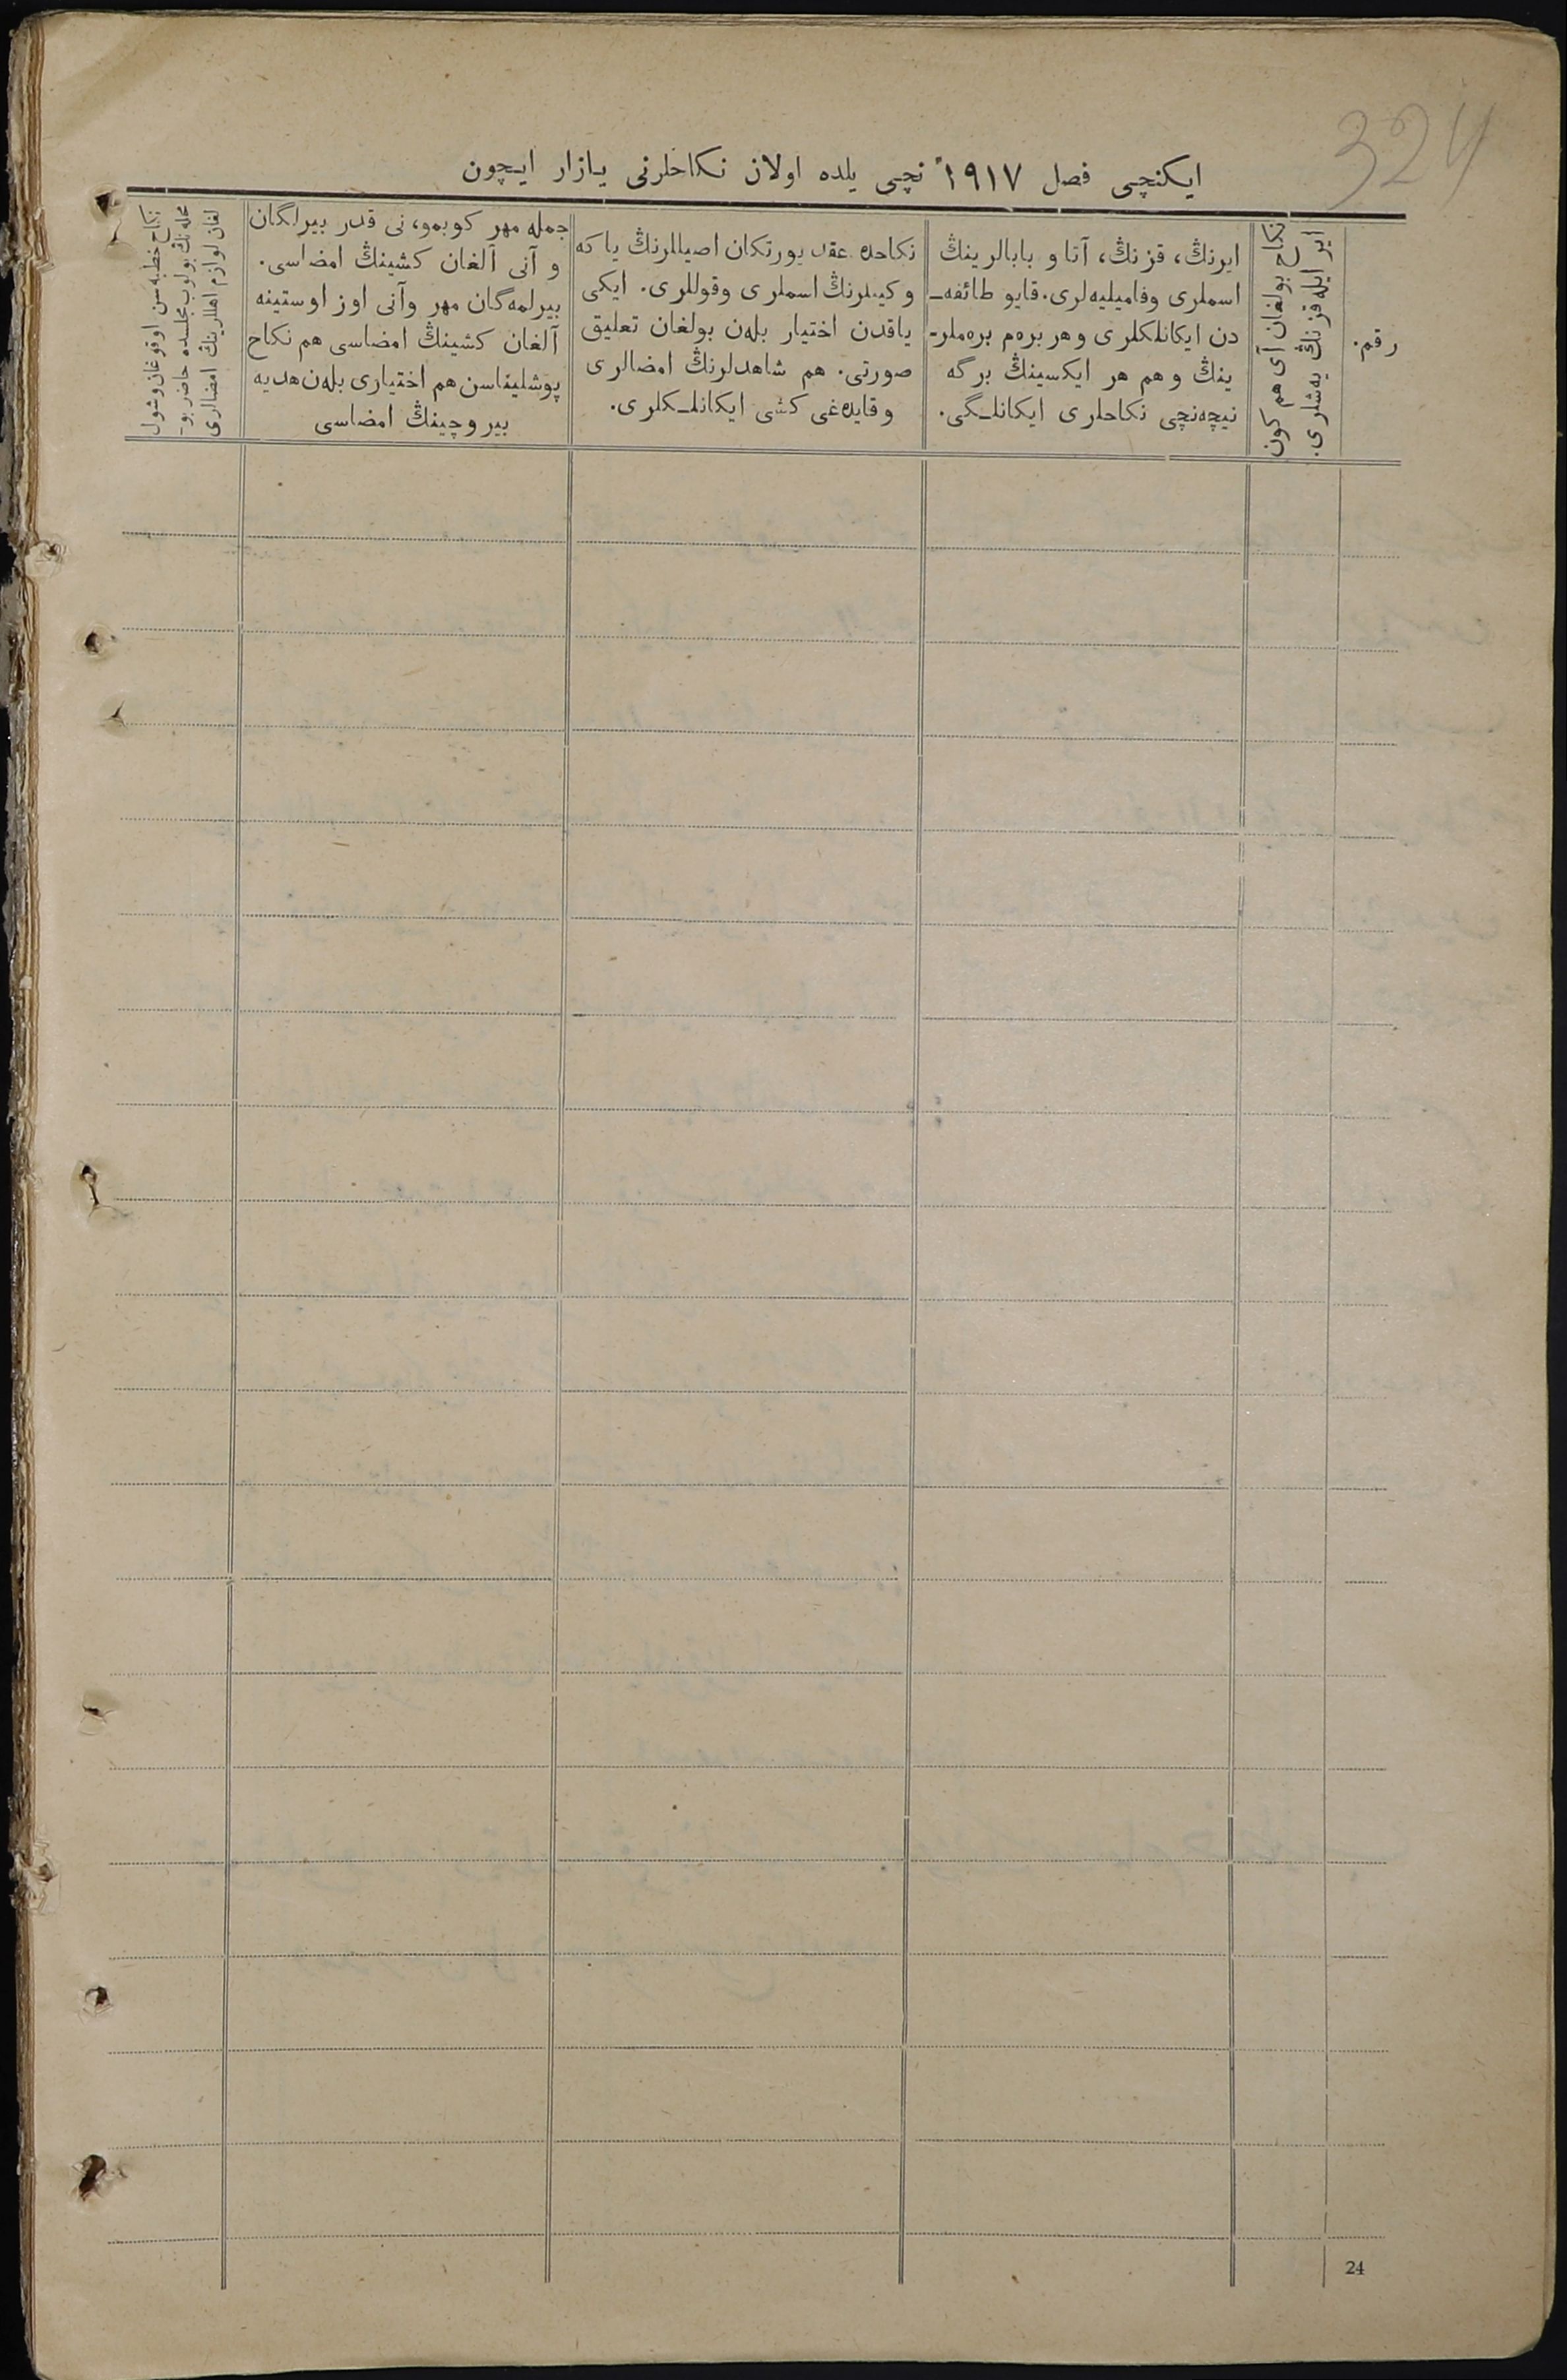 324
ایکنچی فصل ۱۹۱۷ نچی یلده اولان نکاحلرنی یازار ایچون
رقم.
ایر ایله قزنڭ یه‌شلری.
نکاح بولغان آی هم کون
ایرنڭ، قزنڭ، آتا و بابالرینڭ
اسملری وفامیلیه‌لری. قایو طائفه‌ـ
دن ایکانلکلری و هر بره‌م بره‌ملرـ
ینڭ و هم هر ایکسینڭ برگه
نیچه‌نچی نکاحلری ایکانلـگی.
نکاحده عقد یورتکان اصیللرنڭ یا که
وکیللرنڭ اسملری وقوللری. ایکی
یاقدن اختیار بله‌ن بولغان تعلیق
صورتی. هم شاهدلرنڭ امضالری
وقایده‌غی کشی ایکانلـکلری.
جمله مهر کوبمو، نی قدر بیرلگان
و آنی آلغان کشینڭ امضاسی.
بیرلمه‌گان مهر وآنی اوز اوستینه
آلغان کشینڭ امضاسی هم نکاح
پوشلیناسن هم اختیاری بله‌ن هدیه
بیروچینڭ امضاسی
نکاح خطبه‌سن اوقوغان وشول
محله‌نڭ بولوب مجلسده حاضر بوـ
لغان لوازم اهللرینڭ امضالری
24